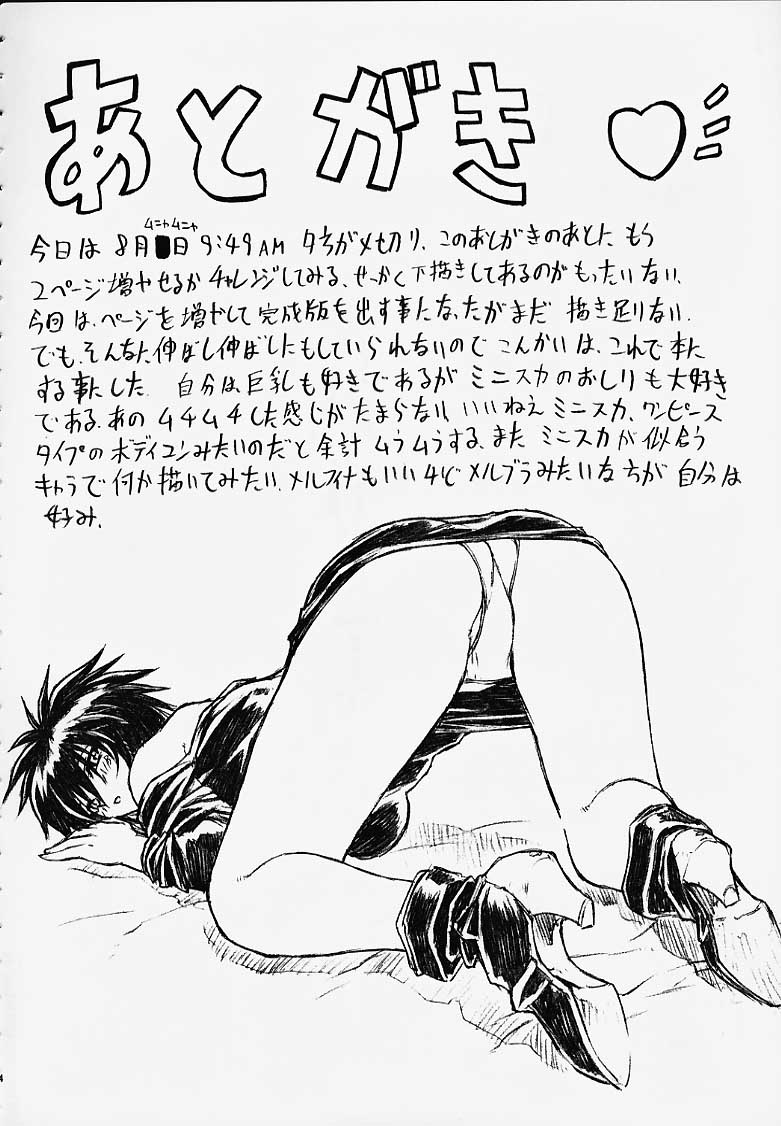 あとがき♡
ムニャムニャ
今日は 8月■日 9:49AM 夕方がメ切り、このあとがきのあとに もう
2ページ増やせるか チャレンジしてみる、せっかく下描きしてあるのがもったいない、
今回は、ページを増やして完成版を出す事になったがまだ 描き足りない、
でも、そんなに伸ばし伸ばしにもしていられないので こんかいは、これで本に
する事にした 自分は巨乳も好きであるが ミニスカのおしりも大好き
である、あの ムチムチした感じがたまらない、いいねえ ミニスカ、ワンピース
タイプの ボディコンみたいのだと 余計 ムラムラする、また ミニスカが 似合う
キャラで 何か描いてみたい、メルフィナもいいけど メルブラみたいな 方が 自分は
好み、